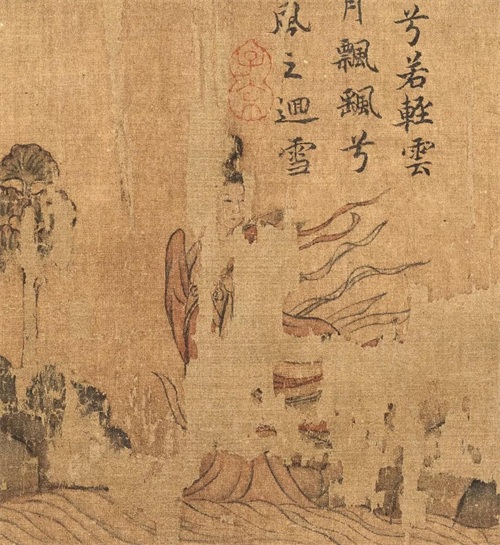 兮若輕雲
月飄飖兮
風之迴雪